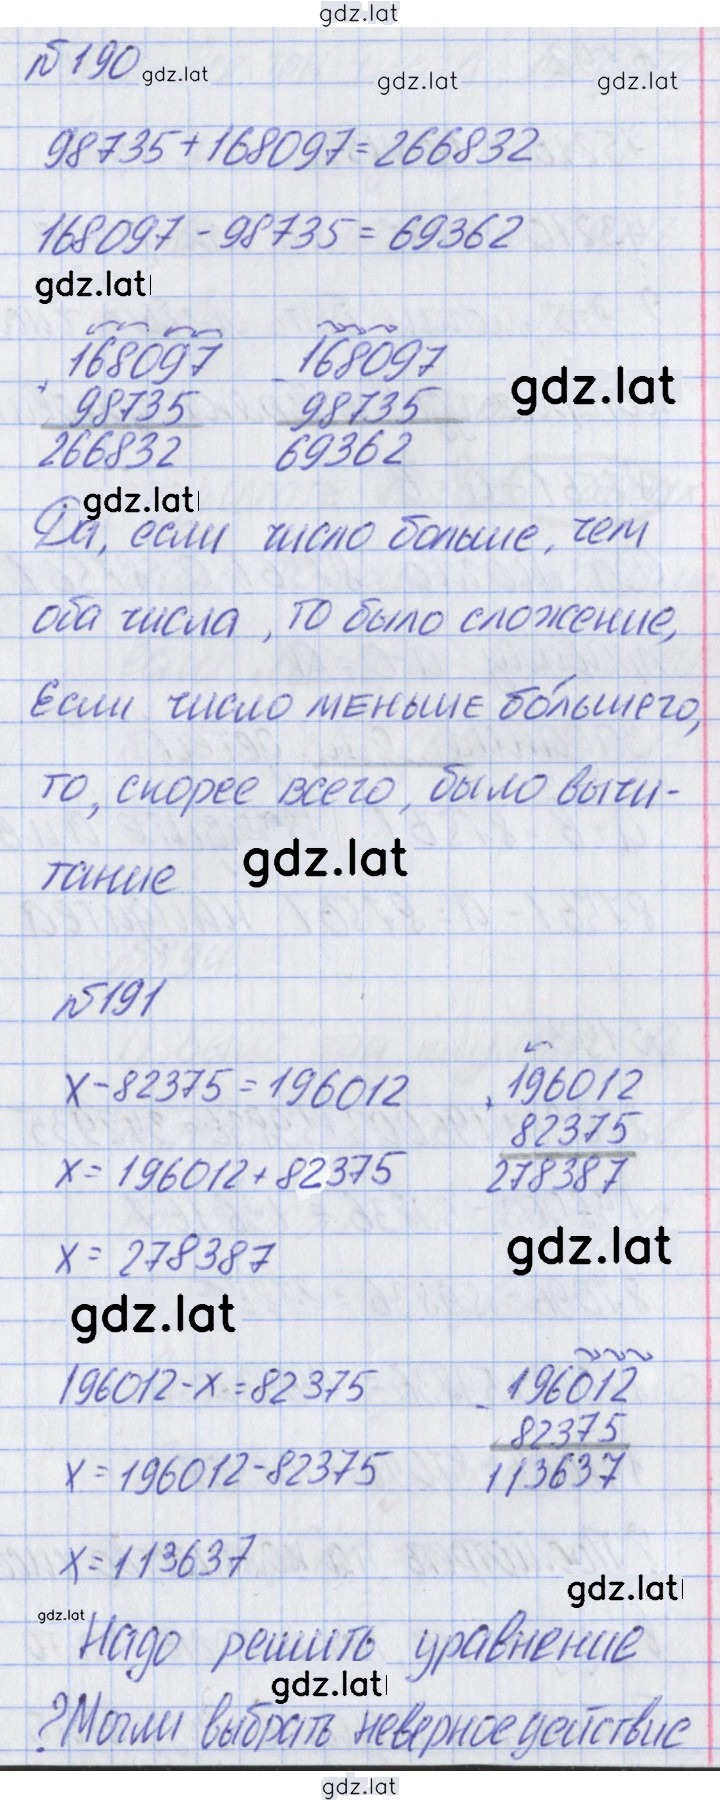 gdz.lat
№190
gdz.lat gdz.lat gdz.lat
98735+168097=266832
168097-98735=69362
gdz.lat
+ 168097 - 168097
98735 98735
266832 69362
gdz.lat
gdz.lat
Да, если число больше, чем
оба числа, то было сложение,
Если число меньше бо́льшего,
то, скорее всего, было вычи-
тание
gdz.lat
№191
x-82375=196012 + 196012
82375
x=196012+82375 278387
x=278387
gdz.lat
gdz.lat
196012-x=82375 - 196012
82375
x=196012-82375 113637
x=113637
gdz.lat
gdz.lat
Надо решить уравнение
gdz.lat
?Могли выбрать неверное действие
gdz.lat